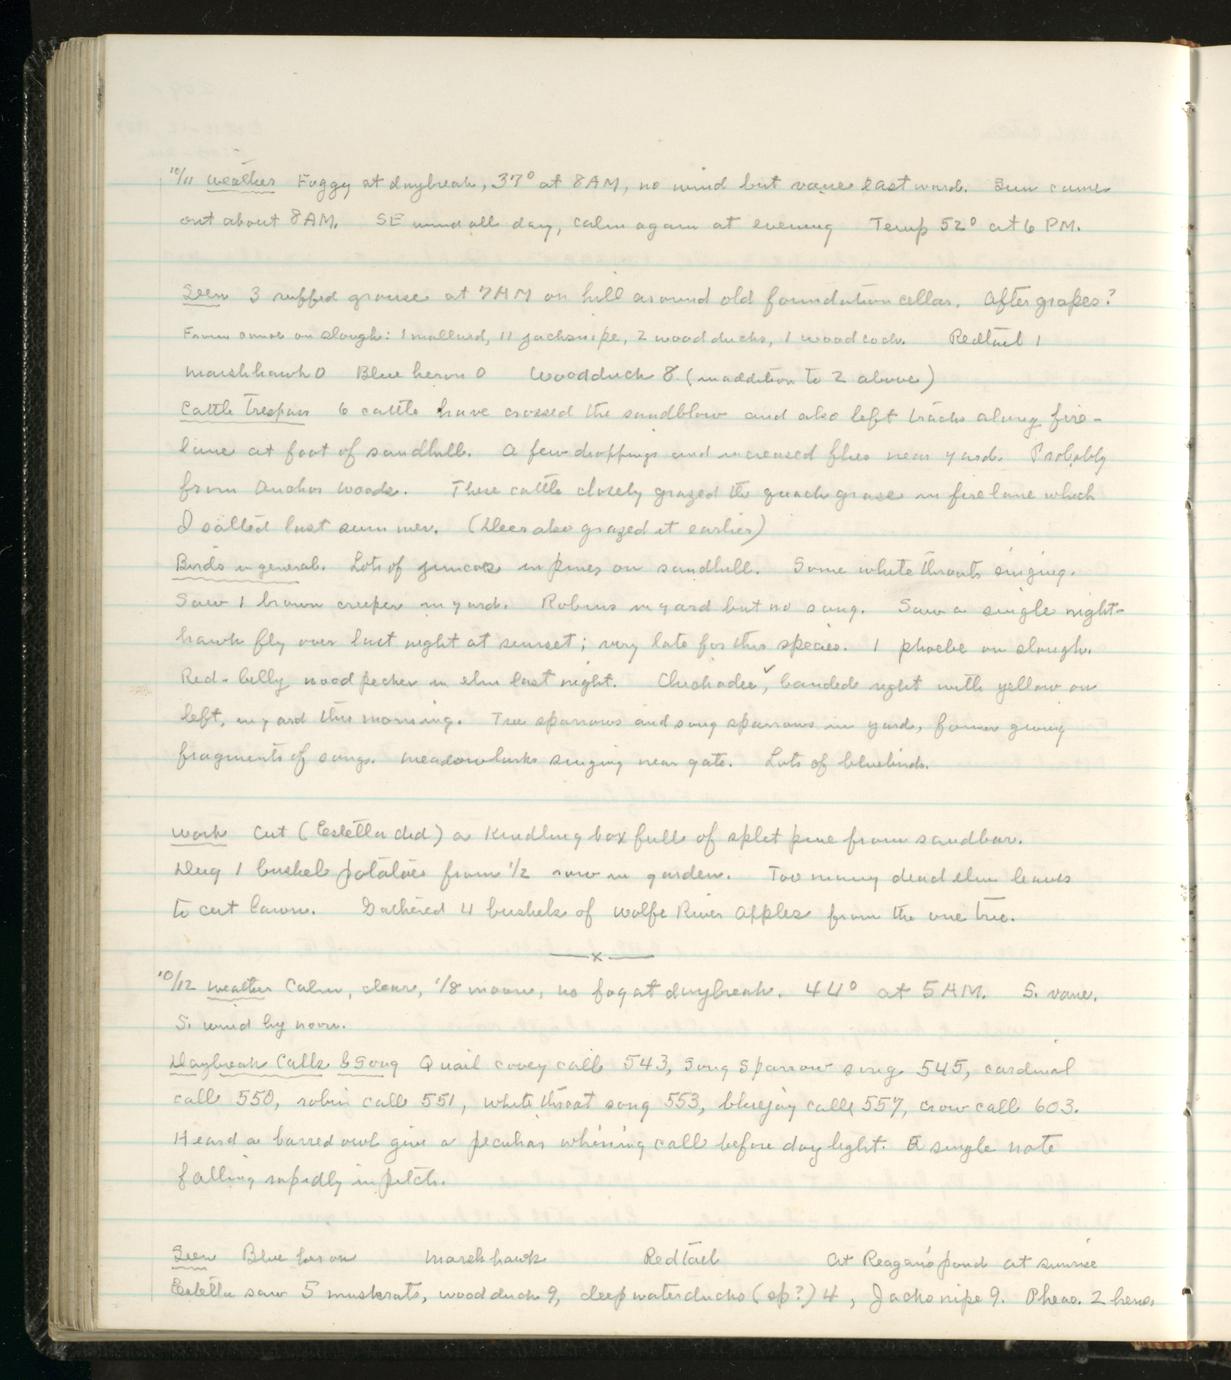 10/11 Weather Foggy at daybreak, 37° at 8AM, no wind but vane eastward. Sun came
out about 8AM. SE wind all day, calm again at evening Temp 52° at 6 PM.
Seen 3 ruffed grouse at 7AM on hill around old foundation cellar. After grapes?
From canoe on slough: 1 mallard, 11 jacksnipe, 2 woodducks, 1 woodcock. Redtail 1
Marshhawk 0 Blue heron 0 Woodduck 8 (in addition to 2 above)
Cattle Trespass 6 cattle have crossed the sandblow and also left tracks along fire-
lane at foot of sandhill. A few droppings and increased flies near yard. Probably
from Anchor woods. These cattle closely grazed the quack grass in firelane which
I salted last summer. (Deer also grazed it earlier)
Birds in general. Lots of juncos in pines on sandhill. Some whitethroats singing.
Saw 1 brown creeper in yard. Robins in yard but no song. Saw a single night-
hawk fly over last night at sunset; very late for this species. 1 phoebe on slough.
Red-belly woodpecker in elm last night. Chickadee ✓, banded right with yellow on
left, in yard this morning. Tree sparrows and song sparrows in yard, former giving
fragments of song. Meadowlarks singing near gate. Lots of bluebirds.
Work Cut (Estella did) a kindling box full of split pine from sandbar.
Dug 1 bushel potatoes from 1/2 row in garden. Too many dead elm leaves
to cut lawn. Gathered 4 bushels of Wolfe River apples from the one tree.
x
10/12 Weather Calm, clear, 1/8 moon, no fog at daybreak. 44° at 5AM. S. vane.
S. wind by noon.
Daybreak Calls & Song Quail covey call 543, Song Sparrow song 545, cardinal
call 550, robin call 551, whitethroat song 553, bluejay call 557, crow call 603.
Heard a barred owl give a peculiar whining call before daylight. A single note
falling rapidly in pitch.
Seen Blue heron Marsh hawk Redtail At Reagan's pond at sunrise
Estella saw 5 muskrats, woodduck 9, deepwaterducks (sp?) 4, Jacksnipe 9. Pheas. 2 hens,